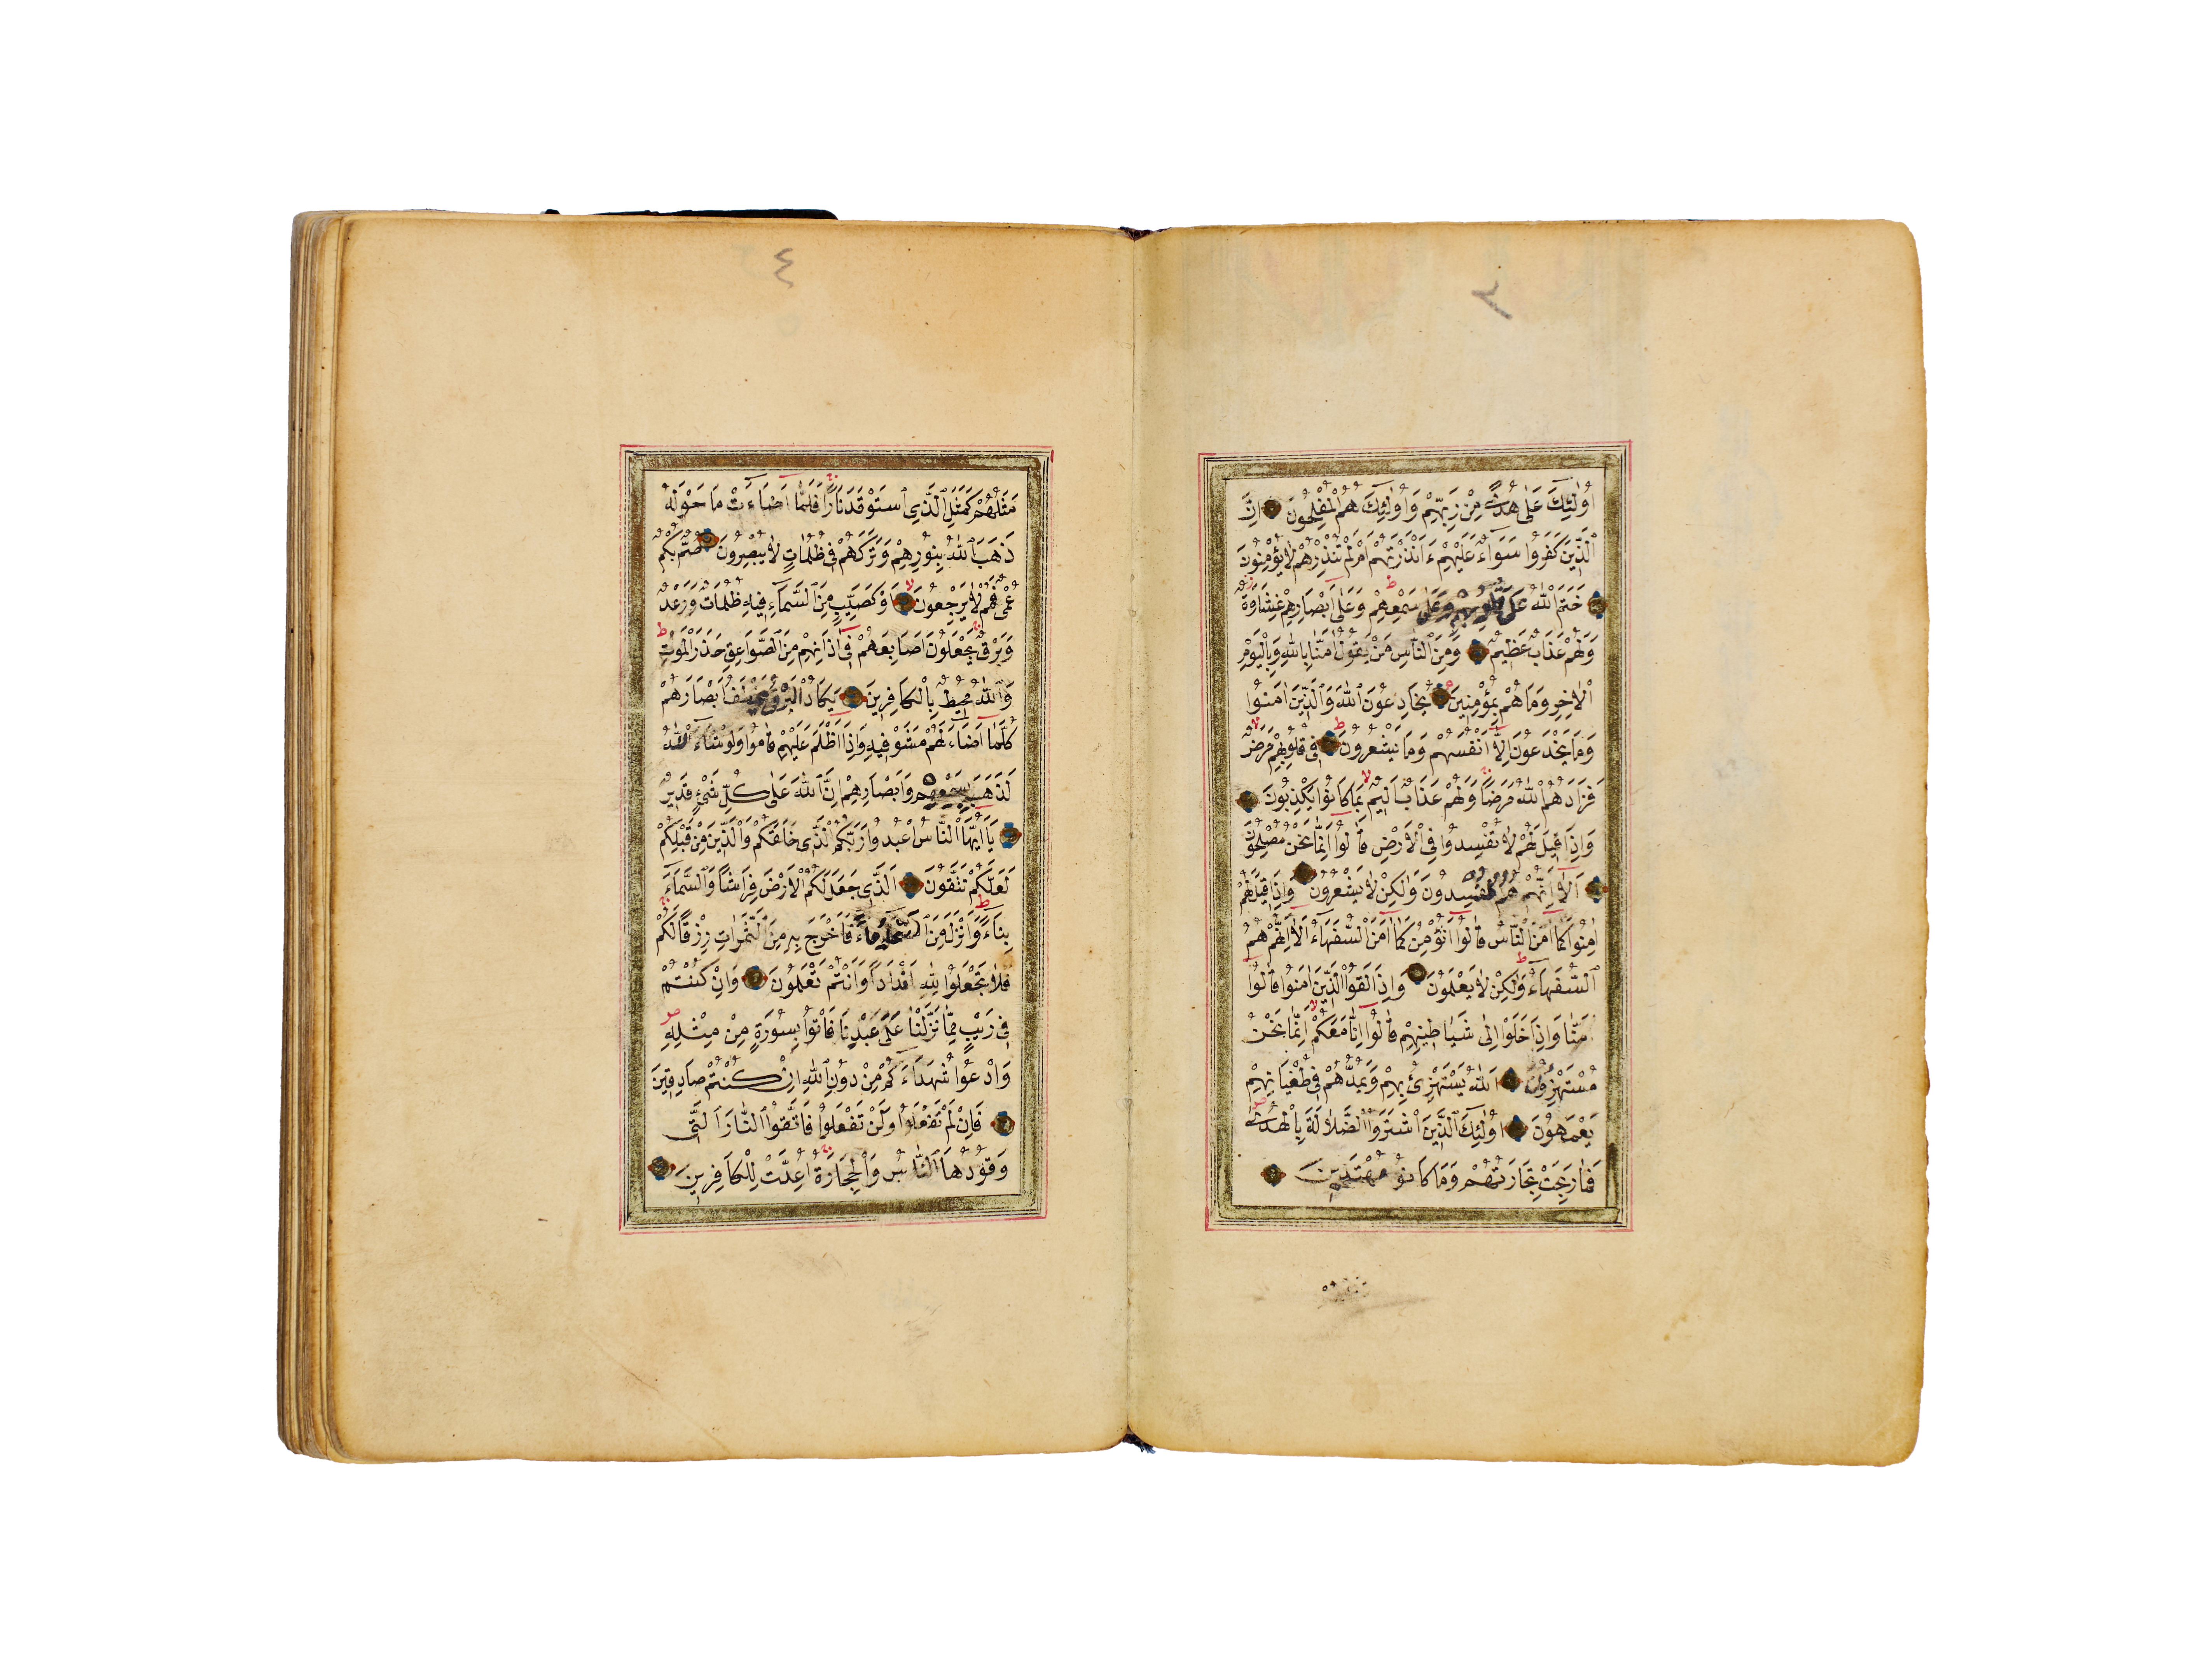 ٣
اُولٰئِكَ عَلٰى هُدًى مِنْ رَبِّهِمْ وَاُولٰئِكَ هُمُ الْمُفْلِحُونَ اِنَّ
الَّذِينَ كَفَرُوا سَوَاءٌ عَلَيْهِمْ ءَاَنْذَرْتَهُمْ اَمْ لَمْ تُنْذِرْهُمْ لَا يُؤْمِنُونَ
خَتَمَ اللّٰهُ عَلٰى قُلُوبِهِمْ وَعَلٰى سَمْعِهِمْ وَعَلٰى اَبْصَارِهِمْ غِشَاوَةٌ
وَلَهُمْ عَذَابٌ عَظِيمٌ وَمِنَ النَّاسِ مَنْ يَقُولُ اٰمَنَّا بِاللّٰهِ وَبِالْيَوْمِ
الْاٰخِرِ وَمَا هُمْ بِمُؤْمِنِينَ يُخَادِعُونَ اللّٰهَ وَالَّذِينَ اٰمَنُوا
وَمَا يَخْدَعُونَ اِلَّا اَنْفُسَهُمْ وَمَا يَشْعُرُونَ فِى قُلُوبِهِمْ مَرَضٌ
فَزَادَهُمُ اللّٰهُ مَرَضًا وَلَهُمْ عَذَابٌ اَلِيمٌ بِمَا كَانُوا يَكْذِبُونَ
وَاِذَا قِيلَ لَهُمْ لَا تُفْسِدُوا فِى الْاَرْضِ قَالُوا اِنَّمَا نَحْنُ مُصْلِحُونَ
اَلَا اِنَّهُمْ هُمُ الْمُفْسِدُونَ وَلٰكِنْ لَا يَشْعُرُونَ وَاِذَا قِيلَ لَهُمْ
اٰمِنُوا كَمَا اٰمَنَ النَّاسُ قَالُوا اَنُؤْمِنُ كَمَا اٰمَنَ السُّفَهَاءُ اَلَا اِنَّهُمْ هُمُ
السُّفَهَاءُ وَلٰكِنْ لَا يَعْلَمُونَ وَاِذَا لَقُوا الَّذِينَ اٰمَنُوا قَالُوا
اٰمَنَّا وَاِذَا خَلَوْا اِلٰى شَيَاطِينِهِمْ قَالُوا اِنَّا مَعَكُمْ اِنَّمَا نَحْنُ
مُسْتَهْزِؤُنَ اَللّٰهُ يَسْتَهْزِئُ بِهِمْ وَيَمُدُّهُمْ فِى طُغْيَانِهِمْ
يَعْمَهُونَ اُولٰئِكَ الَّذِينَ اشْتَرَوُا الضَّلَالَةَ بِالْهُدٰى
فَمَا رَبِحَتْ تِجَارَتُهُمْ وَمَا كَانُوا مُهْتَدِينَ
٤
مَثَلُهُمْ كَمَثَلِ الَّذِى اسْتَوْقَدَ نَارًا فَلَمَّا اَضَاءَتْ مَا حَوْلَهُ
ذَهَبَ اللّٰهُ بِنُورِهِمْ وَتَرَكَهُمْ فِى ظُلُمَاتٍ لَا يُبْصِرُونَ صُمٌّ بُكْمٌ
عُمْىٌ فَهُمْ لَا يَرْجِعُونَ اَوْ كَصَيِّبٍ مِنَ السَّمَاءِ فِيهِ ظُلُمَاتٌ وَرَعْدٌ
وَبَرْقٌ يَجْعَلُونَ اَصَابِعَهُمْ فِى اٰذَانِهِمْ مِنَ الصَّوَاعِقِ حَذَرَ الْمَوْتِ
وَاللّٰهُ مُحِيطٌ بِالْكَافِرِينَ يَكَادُ الْبَرْقُ يَخْطَفُ اَبْصَارَهُمْ
كُلَّمَا اَضَاءَ لَهُمْ مَشَوْا فِيهِ وَاِذَا اَظْلَمَ عَلَيْهِمْ قَامُوا وَلَوْ شَاءَ اللّٰهُ
لَذَهَبَ بِسَمْعِهِمْ وَاَبْصَارِهِمْ اِنَّ اللّٰهَ عَلٰى كُلِّ شَىْءٍ قَدِيرٌ
يَا اَيُّهَا النَّاسُ اعْبُدُوا رَبَّكُمُ الَّذِى خَلَقَكُمْ وَالَّذِينَ مِنْ قَبْلِكُمْ
لَعَلَّكُمْ تَتَّقُونَ اَلَّذِى جَعَلَ لَكُمُ الْاَرْضَ فِرَاشًا وَالسَّمَاءَ
بِنَاءً وَاَنْزَلَ مِنَ السَّمَاءِ مَاءً فَاَخْرَجَ بِهِ مِنَ الثَّمَرَاتِ رِزْقًا لَكُمْ
فَلَا تَجْعَلُوا لِلّٰهِ اَنْدَادًا وَاَنْتُمْ تَعْلَمُونَ وَاِنْ كُنْتُمْ
فِى رَيْبٍ مِمَّا نَزَّلْنَا عَلٰى عَبْدِنَا فَاْتُوا بِسُورَةٍ مِنْ مِثْلِهِ
وَادْعُوا شُهَدَاءَكُمْ مِنْ دُونِ اللّٰهِ اِنْ كُنْتُمْ صَادِقِينَ
فَاِنْ لَمْ تَفْعَلُوا وَلَنْ تَفْعَلُوا فَاتَّقُوا النَّارَ الَّتِى
وَقُودُهَا النَّاسُ وَالْحِجَارَةُ اُعِدَّتْ لِلْكَافِرِينَ